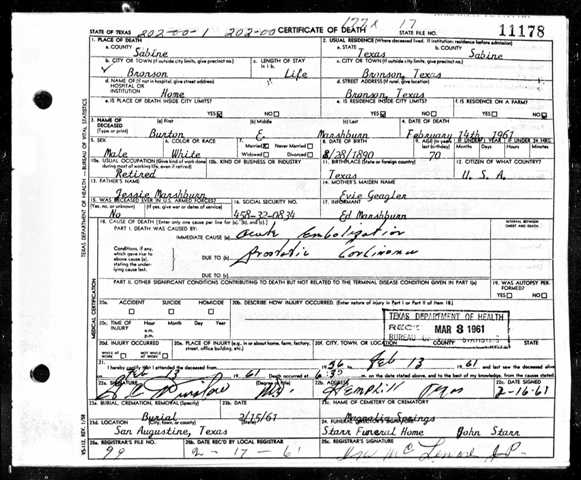 STATE OF TEXAS 202-00-1 202-00 CERTIFICATE OF DEATH 177X 17 STATE FILE NO. 11178
1. PLACE OF DEATH
a. COUNTY Sabine
2. USUAL RESIDENCE (Where deceased lived. If institution: residence before admission)
a. STATE Texas b. COUNTY Sabine
b. CITY OR TOWN (If outside city limits, give precinct no.) Bronson
c. LENGTH OF STAY in 1 b. Life
c. CITY OR TOWN (If outside city limits, give precinct no.) Bronson, Texas
d. NAME OF (If not in hospital, give street address) HOSPITAL OR INSTITUTION Home
d. STREET ADDRESS (If rural, give location) Bronson, Texas
e. IS PLACE OF DEATH INSIDE CITY LIMITS? YES NO
e. IS RESIDENCE INSIDE CITY LIMITS? YES NO
f. IS RESIDENCE ON A FARM? YES NO
3. NAME OF DECEASED (Type or print) (a) First Burton (b) Middle E. (c) Last Marshburn
4. DATE OF DEATH February 14th 1961
5. SEX Male
6. COLOR OR RACE White
7. Married Never Married Widowed Divorced
8. DATE OF BIRTH 8/28/1890
9. AGE (In years last birthday) 70 IF UNDER 1 YEAR IF UNDER 24 HRS.
10a. USUAL OCCUPATION (Give kind of work done during most of working life, even if retired) Retired
10b. KIND OF BUSINESS OR INDUSTRY
11. BIRTHPLACE (State or foreign country) Texas
12. CITIZEN OF WHAT COUNTRY? U. S. A.
13. FATHER'S NAME Jessie Marshburn
14. MOTHER'S MAIDEN NAME Evie Geagler
15. WAS DECEASED EVER IN U.S. ARMED FORCES? (Yes, no, or unknown) (If yes, give war or dates of service) No
16. SOCIAL SECURITY NO. 458-32-0834
17. INFORMANT Ed Marshburn
18. CAUSE OF DEATH (Enter only one cause per line for (a), (b), and (c).)
INTERVAL BETWEEN ONSET AND DEATH
PART I. DEATH WAS CAUSED BY:
IMMEDIATE CAUSE (a)
Conditions, if any, which gave rise to above cause (a), stating the underlying cause last.
DUE TO (b) Prostatic
DUE TO (c)
PART II. OTHER SIGNIFICANT CONDITIONS CONTRIBUTING TO DEATH BUT NOT RELATED TO THE TERMINAL DISEASE CONDITION GIVEN IN PART I(a)
19. WAS AUTOPSY PERFORMED? YES NO
20a. ACCIDENT SUICIDE HOMICIDE
20b. DESCRIBE HOW INJURY OCCURRED. (Enter nature of injury in Part I or Part II of item 18.)
20c. TIME OF INJURY Hour Month Day Year a.m. p.m.
TEXAS DEPARTMENT OF HEALTH
REC'D MAR 8 1961
BUREAU OF STATISTICS
20d. INJURY OCCURRED WHILE AT WORK NOT WHILE AT WORK
20e. PLACE OF INJURY (e.g., in or about home, farm, factory, street, office building, etc.)
20f. CITY, TOWN, OR LOCATION COUNTY STATE
21. I hereby certify that I attended the deceased from 19 56 Feb 13 61
Feb 13 61 Death occurred at 6:30 m. on the date stated above, and to the best of my knowledge, from the causes stated.
22a. SIGNATURE (Degree or title) M.D.
22b. ADDRESS Hemphill Texas
22c. DATE SIGNED 2-16-61
23a. BURIAL, CREMATION, REMOVAL (Specify) Burial
23b. DATE 2/15/61
23c. NAME OF CEMETERY OR CREMATORY Magnolia Springs
23d. LOCATION (City, town, or county) (State) San Augustine, Texas
24. FUNERAL DIRECTOR'S SIGNATURE Starr Funeral Home John Starr
25a. REGISTRAR'S FILE NO. 99
25b. DATE REC'D BY LOCAL REGISTRAR 2-17-61
25c. REGISTRAR'S SIGNATURE
TEXAS DEPARTMENT OF HEALTH — BUREAU OF VITAL STATISTICS
MEDICAL CERTIFICATION
VS-112, REV. 1/58